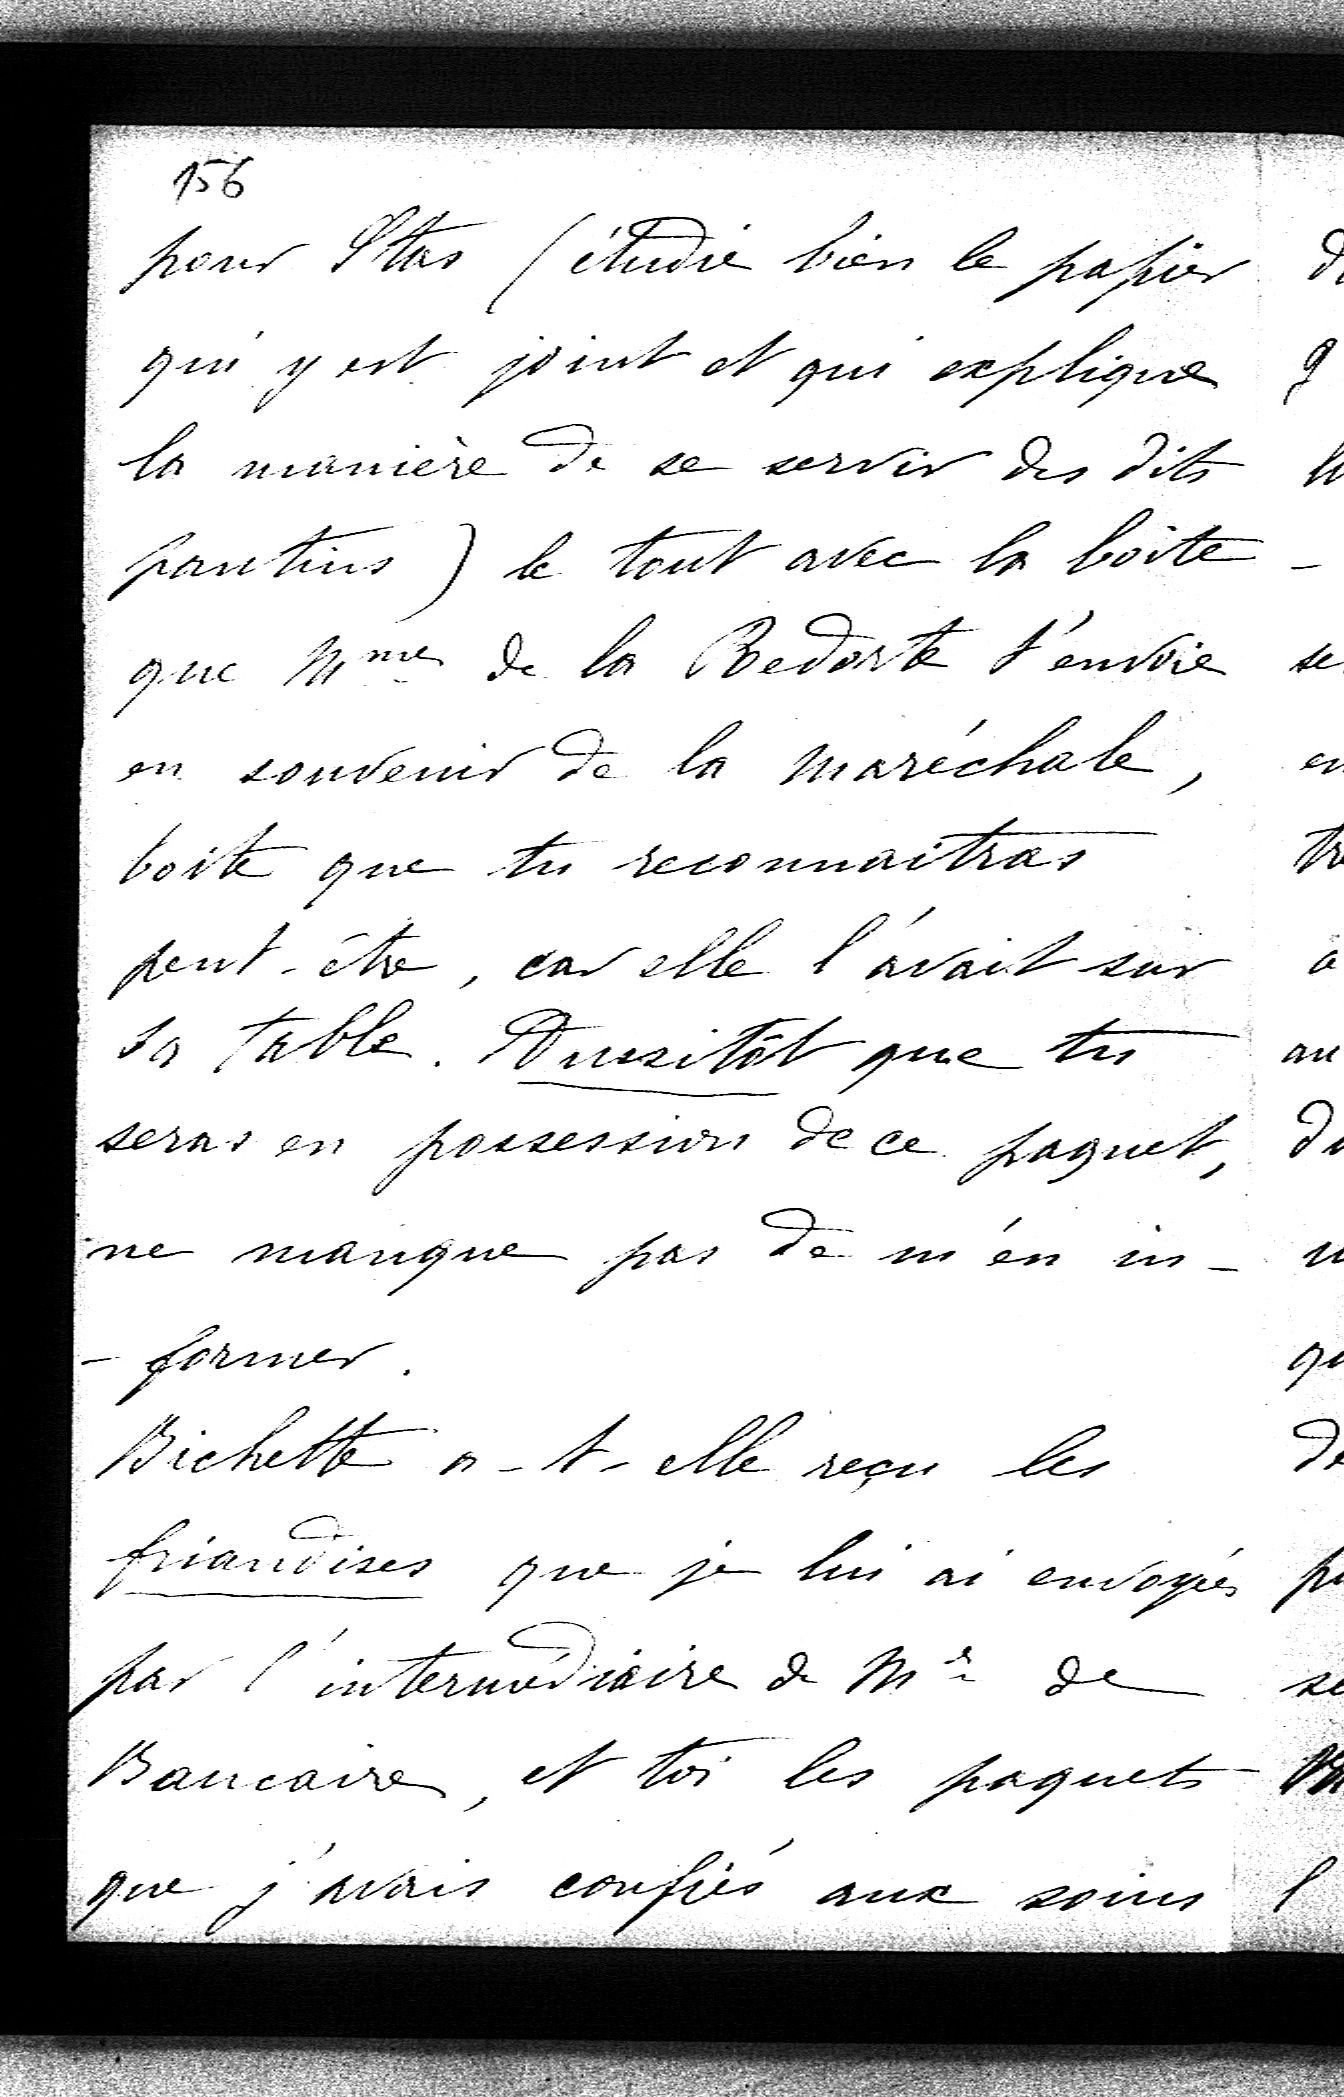 156
pour Stas (étudie bien le papier
qui y est joint et qui explique
la manière de se servir des dits
pantins) le tout avec la boîte
que Mme de la Redorte t'envoie
en souvenir de la Maréchale,
boite que tu reconnaitras
peut-être, car elle l'avait sur
sa table. Aussitôt que tu
seras en possession de ce paquet,
ne manque pas de m'en in-
-former.
Bichette a-t-elle reçu les
friandises que je lui ai envoyées
par l'intermédiaire de Mr de
Baucaire, et toi les paquets
que j'avais confiés aux soins